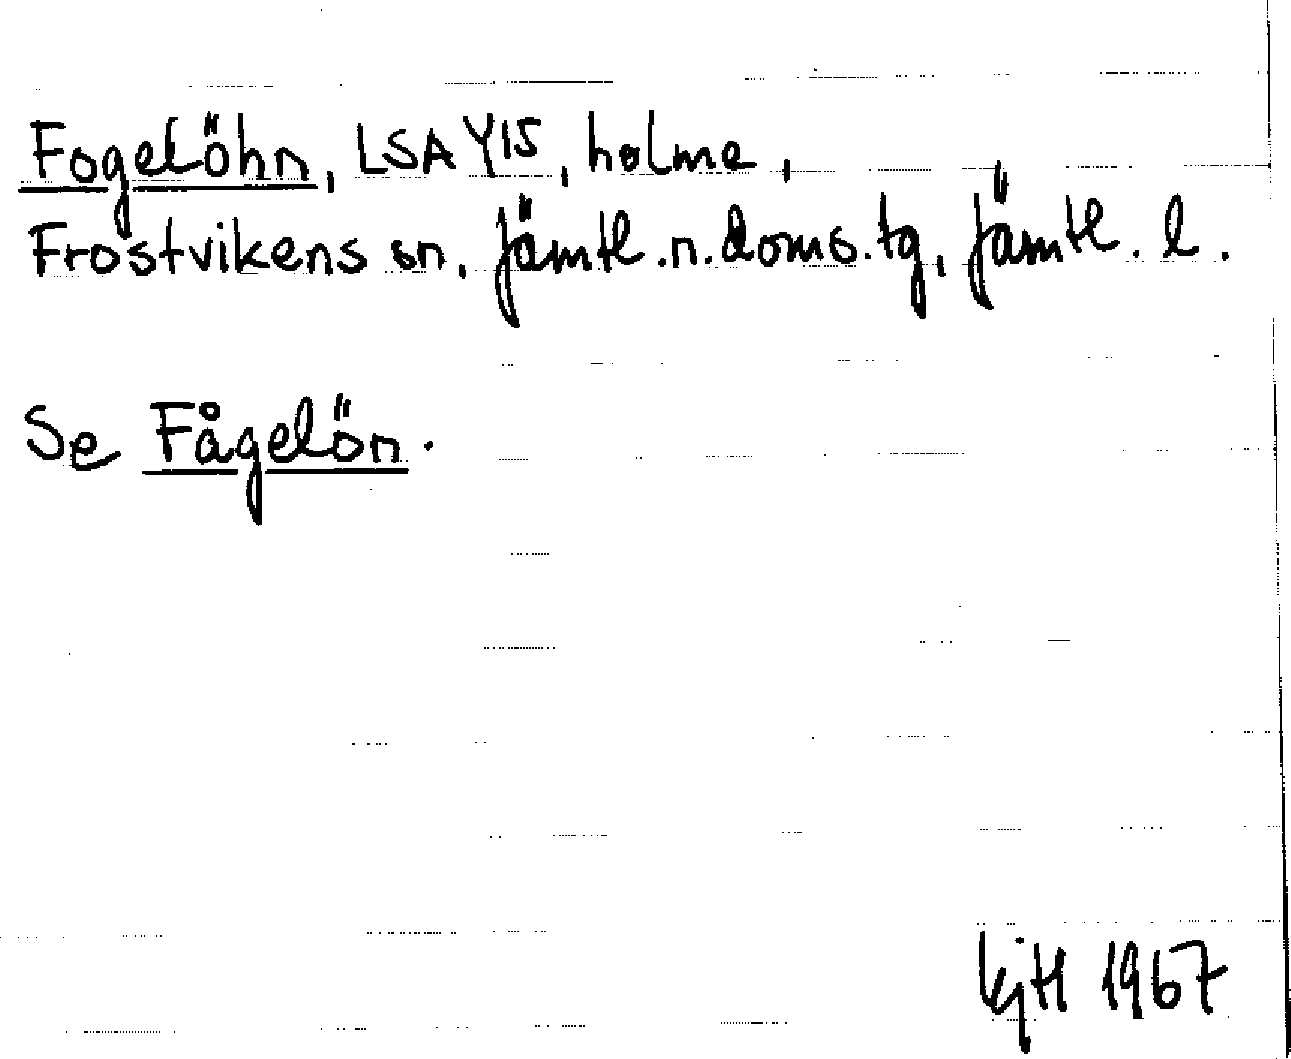 Fogelöhn, LSA Y15, holme,
Frostvikens sn, Jämtl.n.doms.tg, Jämtl. l.
Se Fågelön.
KjH 1967